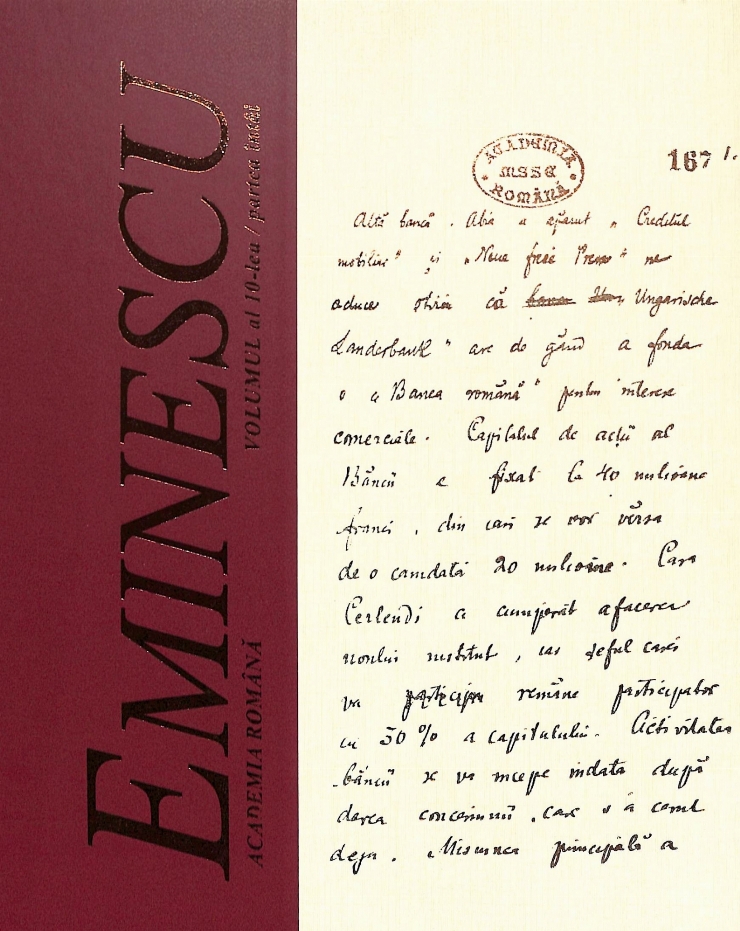 EMINESCU
ACADEMIA ROMÂNĂ
VOLUMUL al 10-lea / partea întâi
ACADEMIA
MSSE
ROMÂNĂ
167 1.
Altă bancă. Abia a apărut „Creditul
mobiliar" și „Neue freie Presse" ne
aduce știrea că Ungarische
Landerbank" are de gând a fonda
o „Banca română" pentru interese
comerciale. Capitalul de acții al
Băncii e fixat la 40 milioane
franci, din cari se vor vărsa
de o camdată 20 milioane. Casa
a cumpărat afacerea
noului institut, iar șeful casei
va participa rămâne participator
cu 50% a capitalului. Activitatea
băncii se va începe îndată după
darea concesiunii, care s'a cerut
deja. Misiunea principală a